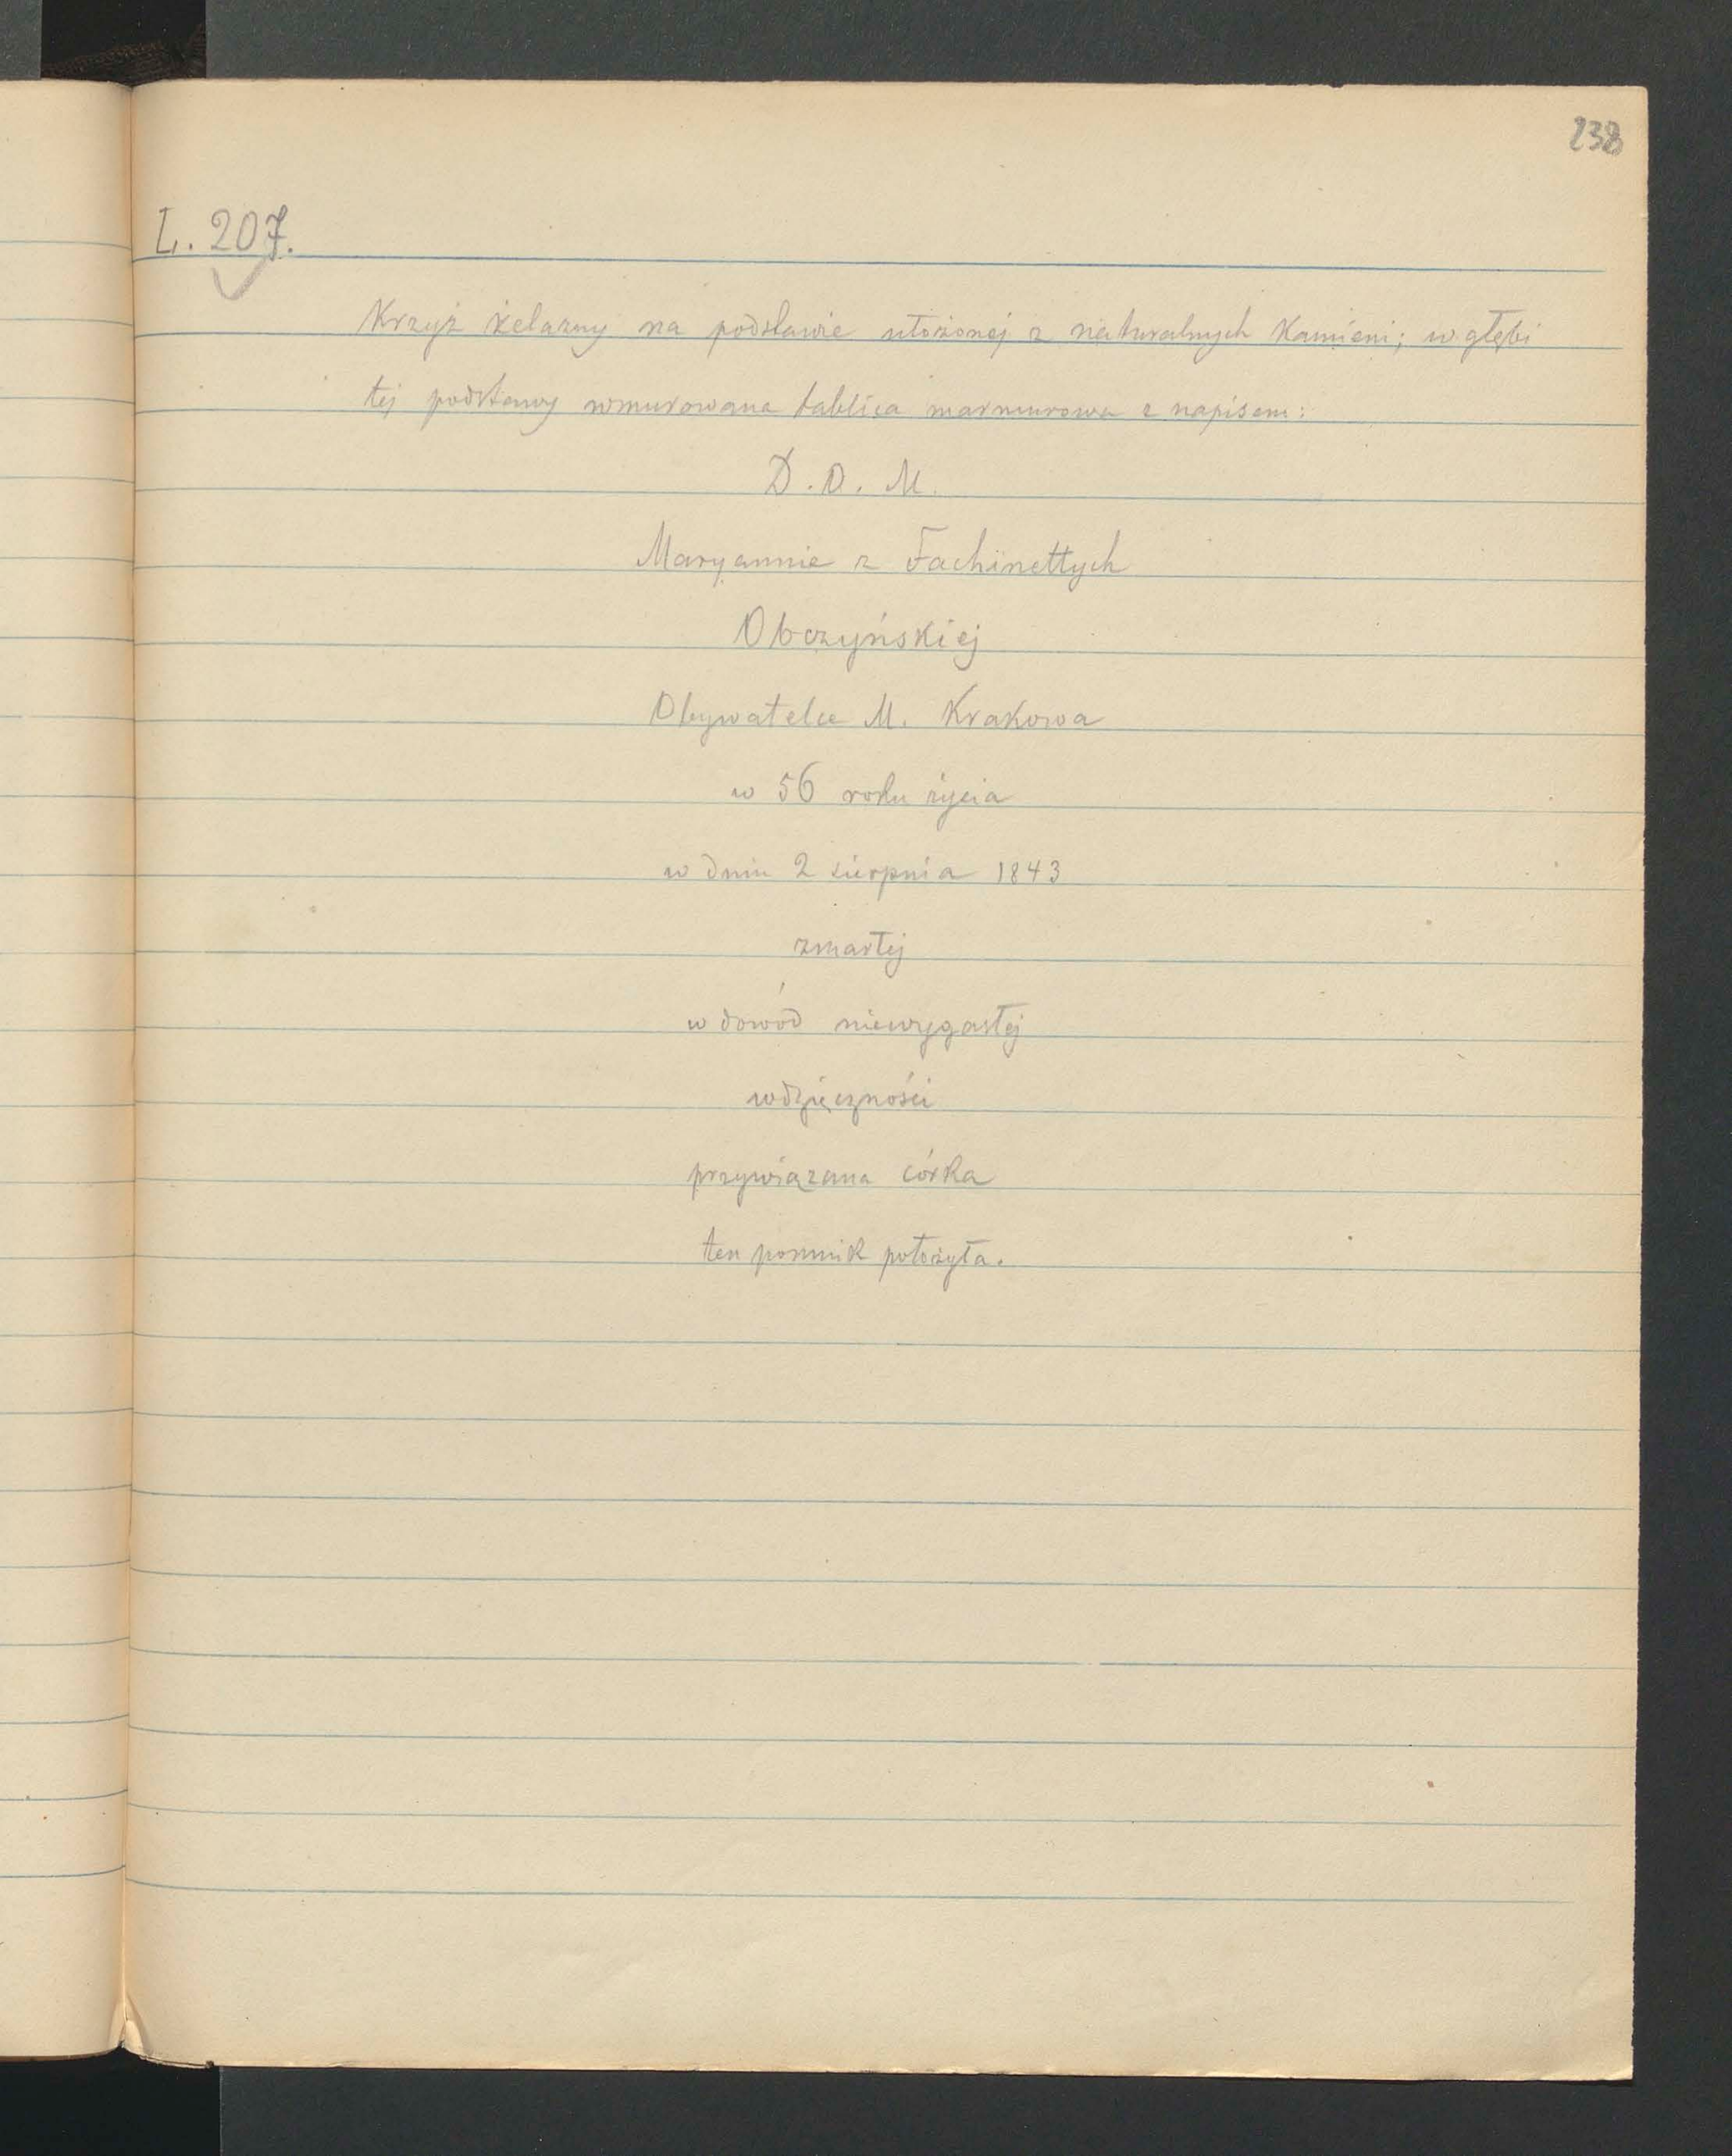 238
L. 207.
Krzyż żelazny na podstawie ułożonej z naturalnych kamieni; w głębi
tej podstawy wmurowana tablica marmurowa z napisem:
D. O. M.
Maryannie z Fachinettych
Obczyńskiej
Obywatelce M. Krakowa
w 56 roku życia
w dniu 2 sierpnia 1843
zmarłej
w dowód niewygasłej
wdzięczności
przywiązana córka
ten pomnik położyła.